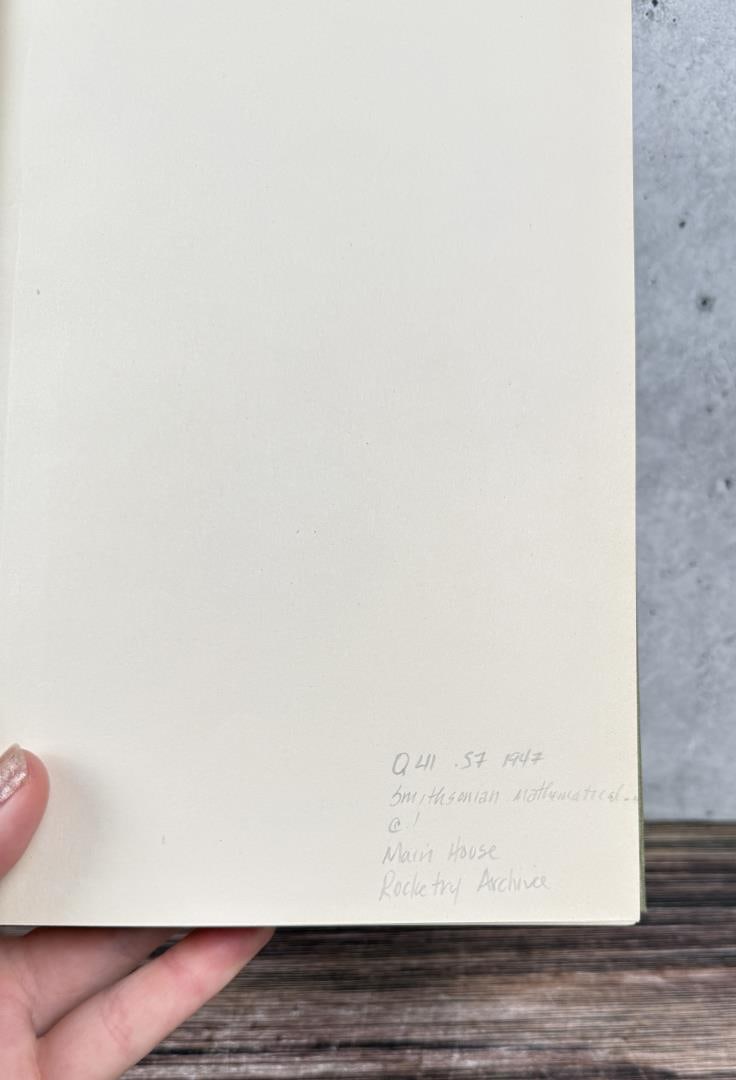 Q 411 .S7 1947
Smithsonian Mathematical...
@ 1
Main House
Rocketry Archive